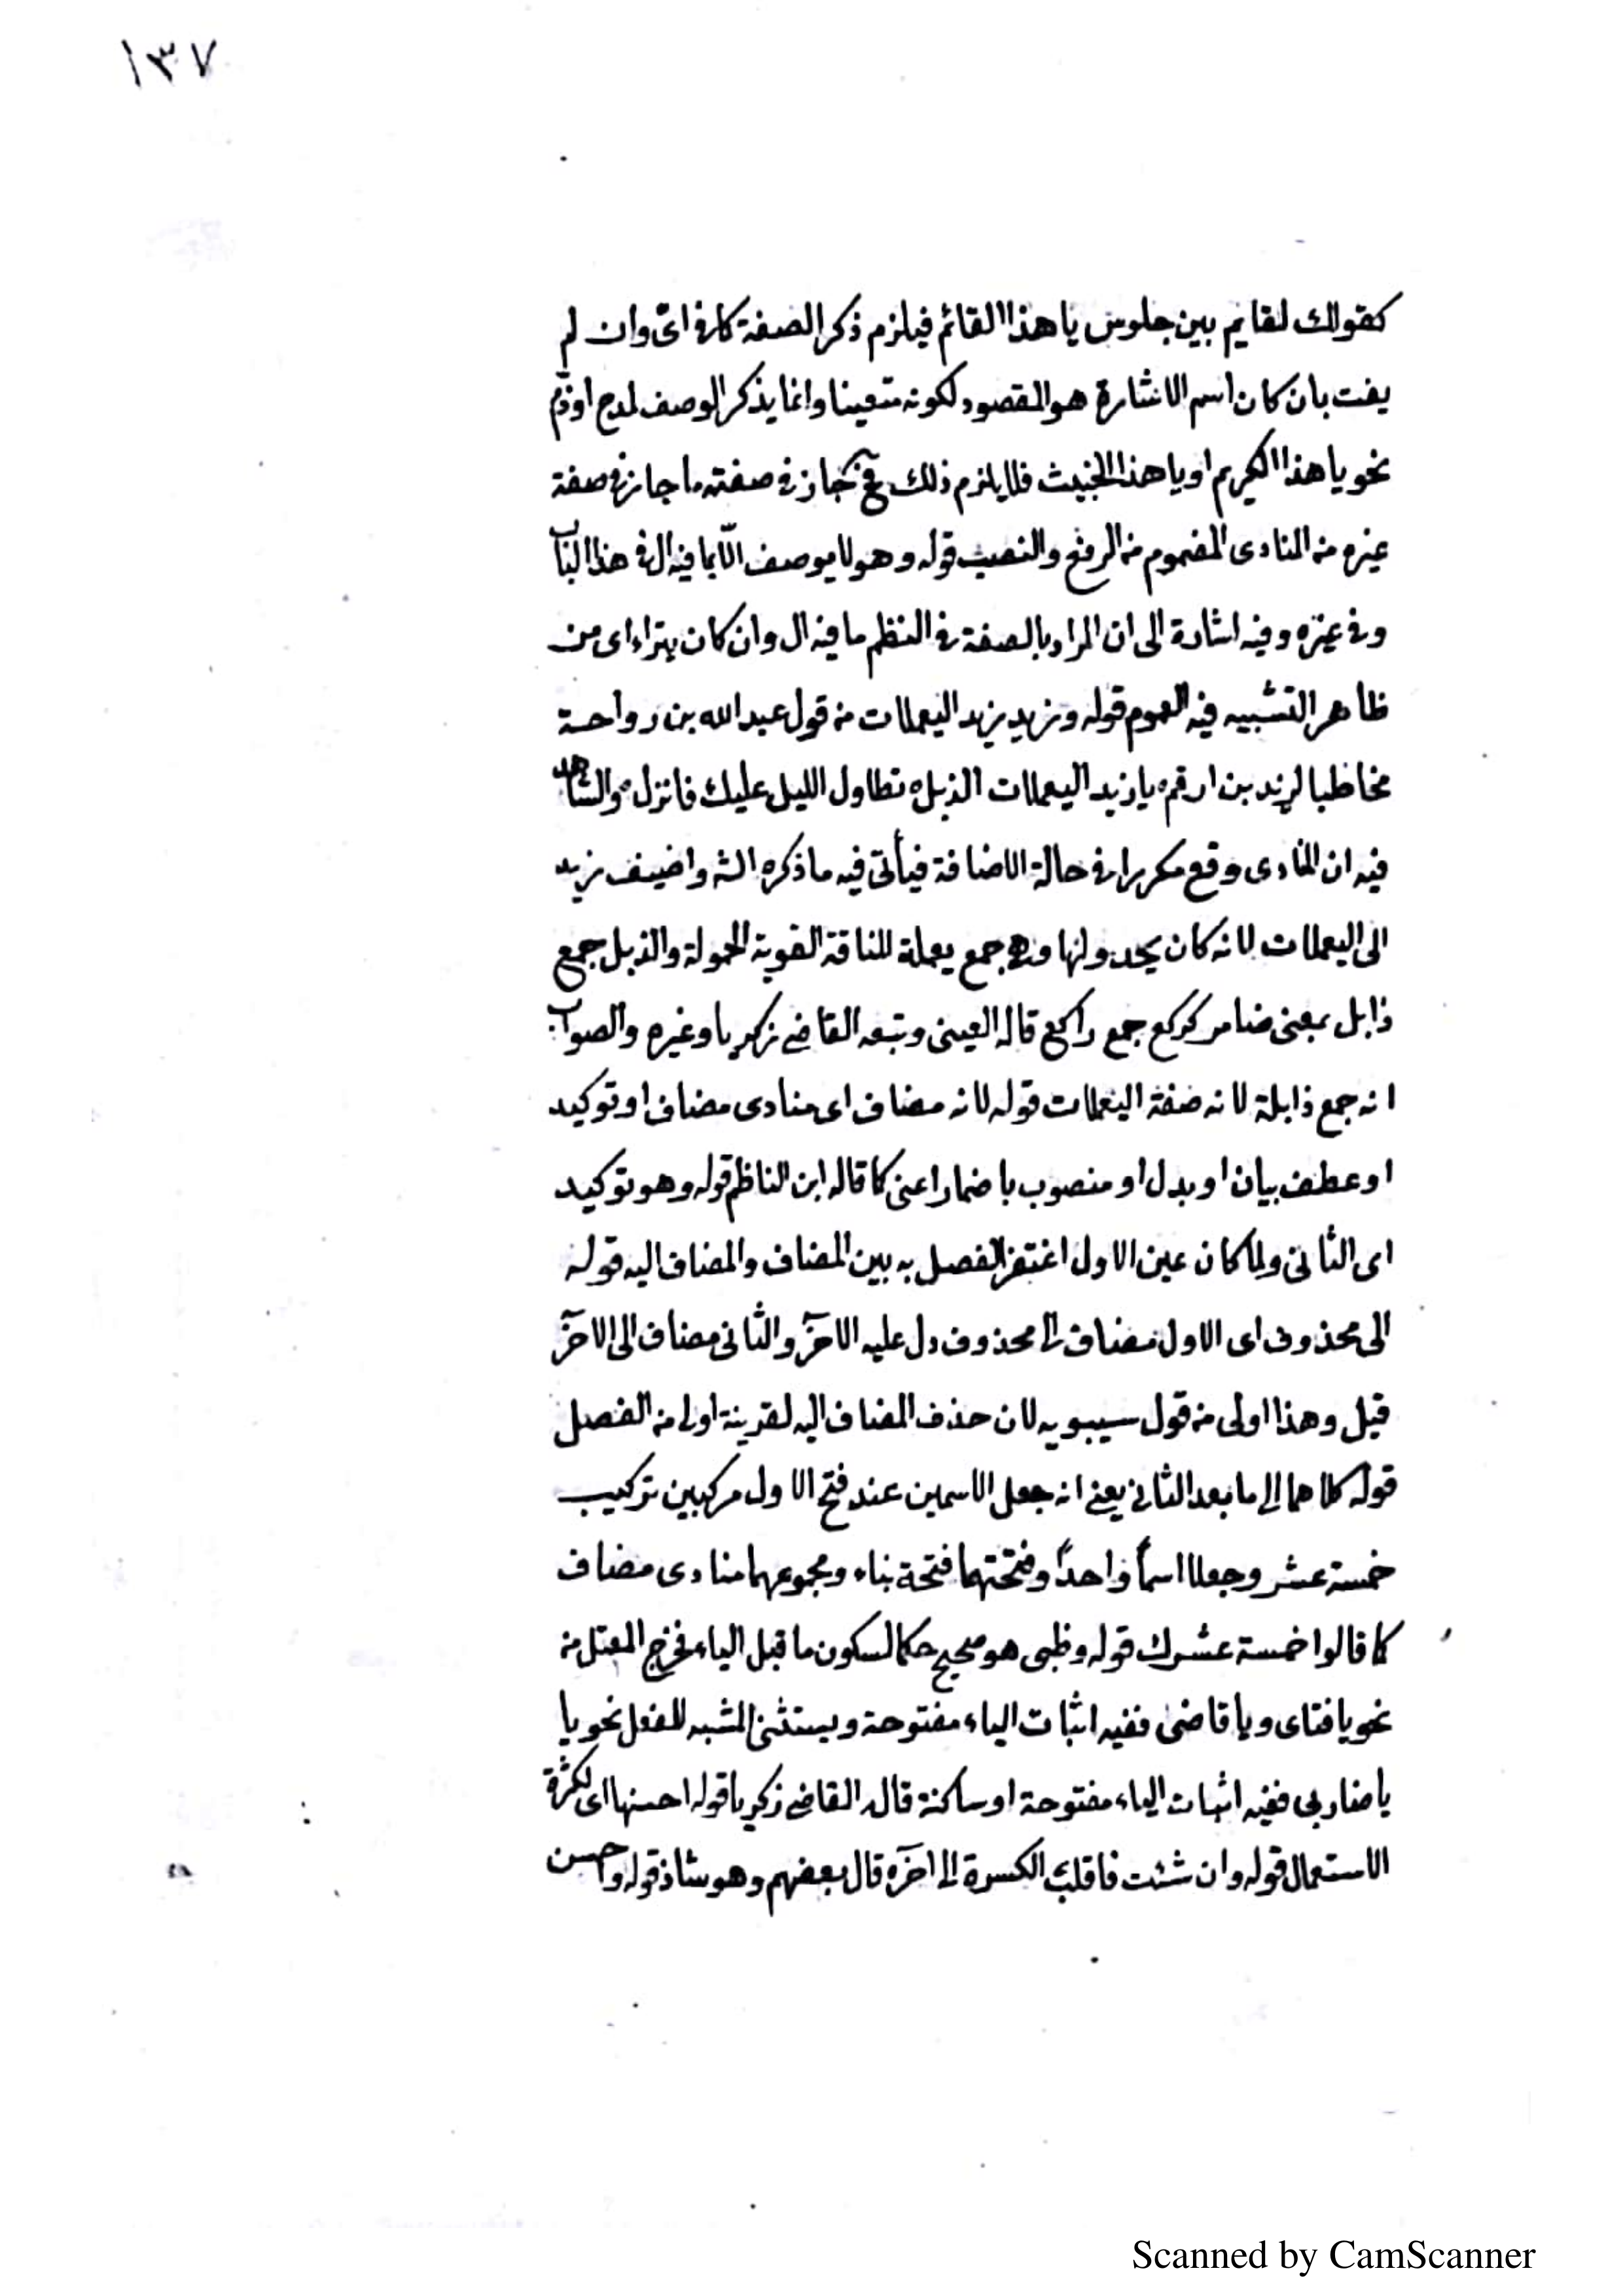 ١٣٧
كقولك لقايم بين جلوس يا هذا القائم فيلزم ذكر الصفة كما في اىّ وان لم
يفت بان كان اسم الاشارة هو المقصود لكونه متعينا وانما يذكر الوصف لمدح او ذم
نحو يا هذا الكريم او يا هذا الخبيث فلا يلزم ذلك فح جاز في صفته ما جاز في صفة
غيره من المنادى المضموم من الرفع والنصب قوله وهو لا يوصف الّا بما فيه ال في هذا الباب
وفي غيره وفيه اشارة الى ان المراد بالصفة في النظم ما فيه ال وان كان يتراءاى من
ظاهر التشبيه فيه العموم قوله وزيد يزيد اليعملات من قول عبد الله بن رواحة
مخاطبا لزيد بن ارقم يا زيد اليعملات الذبل ه تطاول الليل عليك فانزل ه والشاهد
فيه ان المنادى وقع مكررا في حالة الاضافة فيأتى فيه ما ذكره الشه واضيف زيد
الى اليعملات لانه كان يحدو لها وهى جمع يعملة للناقة القوية الحمولة والذبل جمع
ذابل بمعنى ضامر كركع جمع راكع قاله العينى وتبعه القاضي زكريا وغيره والصواب
انه جمع ذابلة لانه صفة اليعملات قوله لانه مضاف اى منادى مضاف او توكيد
او عطف بيان او بدل او منصوب باضمار اعنى كما قاله ابن الناظم قوله وهو توكيد
اى الثانى ولما كان عين الاول اغتفر الفصل به بين المضاف والمضاف اليه قوله
الى محذوف اى الاول مضاف الى محذوف دل عليه الآخر والثانى مضاف الى الآخر
قيل وهذا اولى من قول سيبويه لان حذف المضاف اليه لقرينة اولى من الفصل
قوله كلاهما الى ما بعد الثانى يعنى انه جعل الاسمين عند فتح الاول مركبين تركيب
خمسة عشر وجعلا اسماً واحداً وفتحتهما فتحة بناء ومجموعهما منادى مضاف
كما قالوا خمسة عشرك قوله وظبى هو صحيح حكما لسكون ما قبل الياء فخرج المعتل من
نحو يا فتاى ويا قاضى ففيه اثبات الياء مفتوحة ويستثنى المشبه للفعل نحو يا
يا ضاربى ففيه اثبات الياء مفتوحة او ساكنة قاله القاضي زكريا قوله احسنها اى لكثرة
الاستعمال قوله وان شئت فاقلب الكسرة الى اخره قال بعضهم وهو شاذ قوله واحسن
Scanned by CamScanner